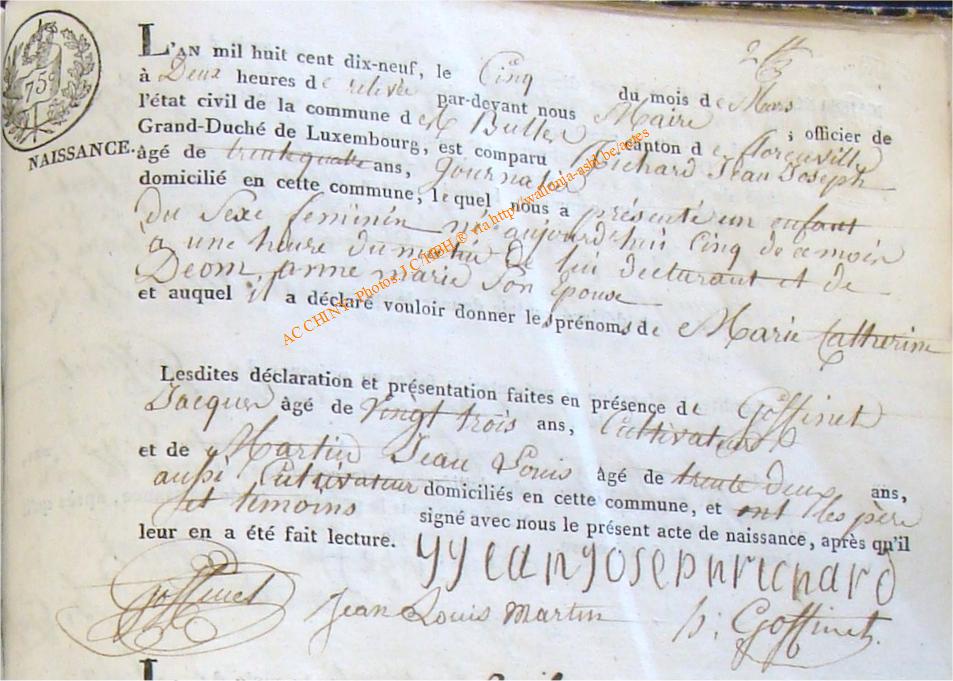 752
NAISSANCE.
L'AN mil huit cent dix-neuf, le Cinq du mois de Mars
à Deux heures de relevée par-devant nous Maire ; officier de
l'état civil de la commune de Buller canton de florenville
Grand-Duché de Luxembourg, est comparu Richard Jean Joseph
âgé de trente quatre ans, Journalier
domicilié en cette commune, lequel nous a présenté un enfant
du Sexe feminin né aujourd'hui Cinq de ce mois
a une heure du matin de lui declarant et de
Deom, anne marie Son Epouse
et auquel il a déclaré vouloir donner les prénoms de Marie Catherine
Lesdites déclaration et présentation faites en présence de Goffinet
Jacques âgé de Vingt trois ans, Cultivateur
et de Martin Jean Louis âgé de trente deux ans,
aussi Cultivateur domiciliés en cette commune, et ont les père
et temoins signé avec nous le présent acte de naissance, après qu'il
leur en a été fait lecture. yyeanyosephrichard
Goffinet Jean Louis Martin Goffinet.
AC CHINY- Photos: J C/HBH.® via http://wallonia-asbl.be/actes